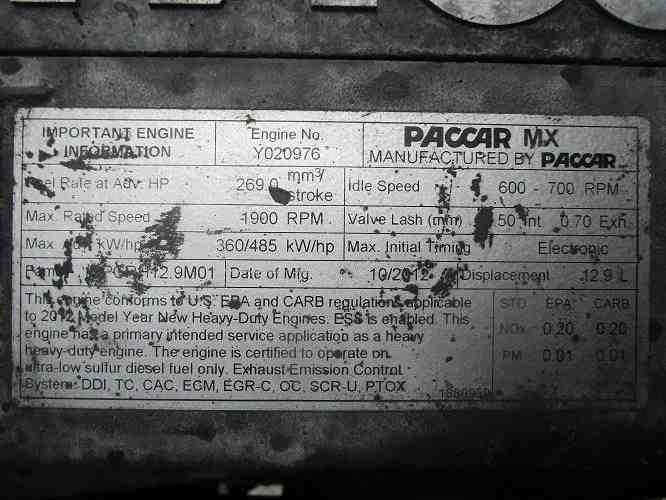 IMPORTANT ENGINE INFORMATION
Engine No. Y020976
PACCAR MX
MANUFACTURED BY PACCAR
Fuel Rate at Adv. HP 269.0 mm³/stroke
Idle Speed 600 - 700 RPM
Max. Rated Speed 1900 RPM
Valve Lash (mm) .50 Int 0.70 Exh
Max. kW/hp 360/485 kW/hp
Max. Initial Timing Electronic
12.9M01
Date of Mfg. 10/2012
Displacement 12.9 L
This engine conforms to U.S. EPA and CARB regulations applicable
to 2012 Model Year New Heavy-Duty Engines. ESS is enabled. This
engine has a primary intended service application as a heavy
heavy-duty engine. The engine is certified to operate on
ultra-low sulfur diesel fuel only. Exhaust Emission Control
System: DDI, TC, CAC, EGM, EGR-C, OC, SCR-U, PTOX
STD EPA CARB
NOx 0.20 0.20
PM 0.01 0.01